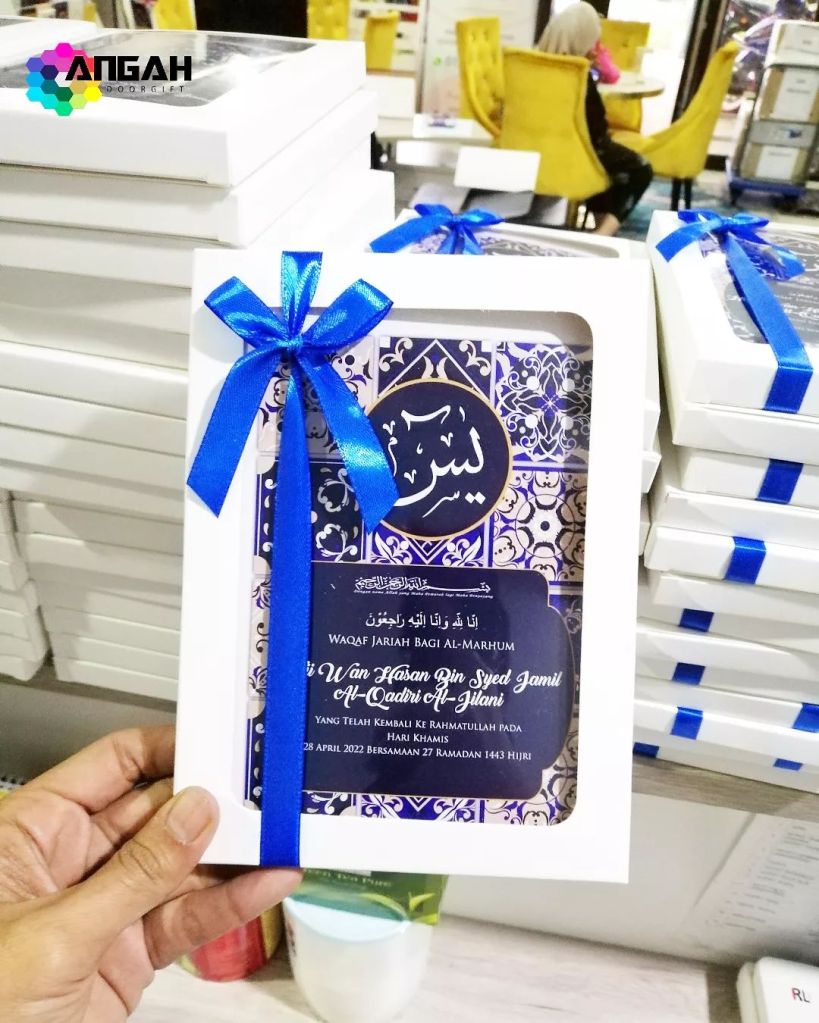 ANGAH
DOORGIFT
يس
بسم الله الرحمن الرحيم
Dengan nama Allah yang Maha Pemurah lagi Maha Penyayang
اِنَّا لِلّٰهِ وَاِنَّا اِلَيْهِ رَاجِعُوْنَ
WAQAF JARIAH BAGI AL-MARHUM
Wan Hasan Bin Syed Jamil
Al-Qadiri Al-Jilani
YANG TELAH KEMBALI KE RAHMATULLAH PADA
HARI KHAMIS
28 APRIL 2022 BERSAMAAN 27 RAMADAN 1443 HIJRI
Green Tea Pure
RL